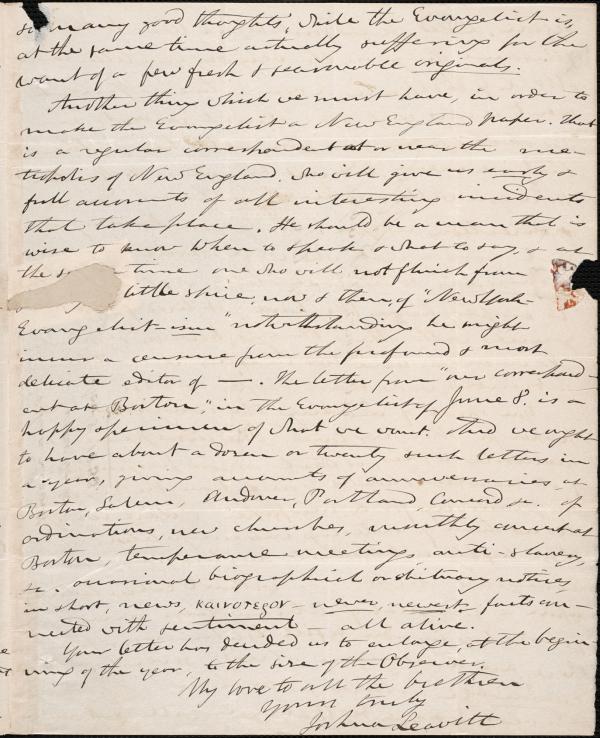 so many good thoughts, while the Evangelist is,
at the same time actually suffering for the
want of a few fresh & seasonable originals.
Another thing which we must have, in order to
make the Evangelist a New England paper. That
is a regular correspondent at or near the me-
tropolis of New England, who will give us early &
full accounts of all interesting incidents
that take place. He should be a man that is
wise to know when to speak & what to say, & at
the same time one who will not flinch from
little spice, now & then, of "New York
Evangelist-ism" notwithstanding he might
incur a censure from the profound & most
delicate editor of —. The letter from "our correspond-
ent at Boston", in the Evangelist of June 8. is a
happy specimen of what we want. And we ought
to have about a dozen or twenty such letters in
a year, giving accounts of anniversaries at
Boston, Salem, Andover, Portland, Concord &c. of
ordinations, new churches, monthly concert at
Boston, temperance meetings, anti-slavery,
&c. occasional biographical or obituary notices,
in short, news, καινοτεροι - newer, newest- facts con-
nected with sentiment - all alive.
Your letter has decided us to enlarge, at the begin-
ning of the year, to the size of the Observer.
My love to all the brethren
Yours truly
Joshua Leavitt